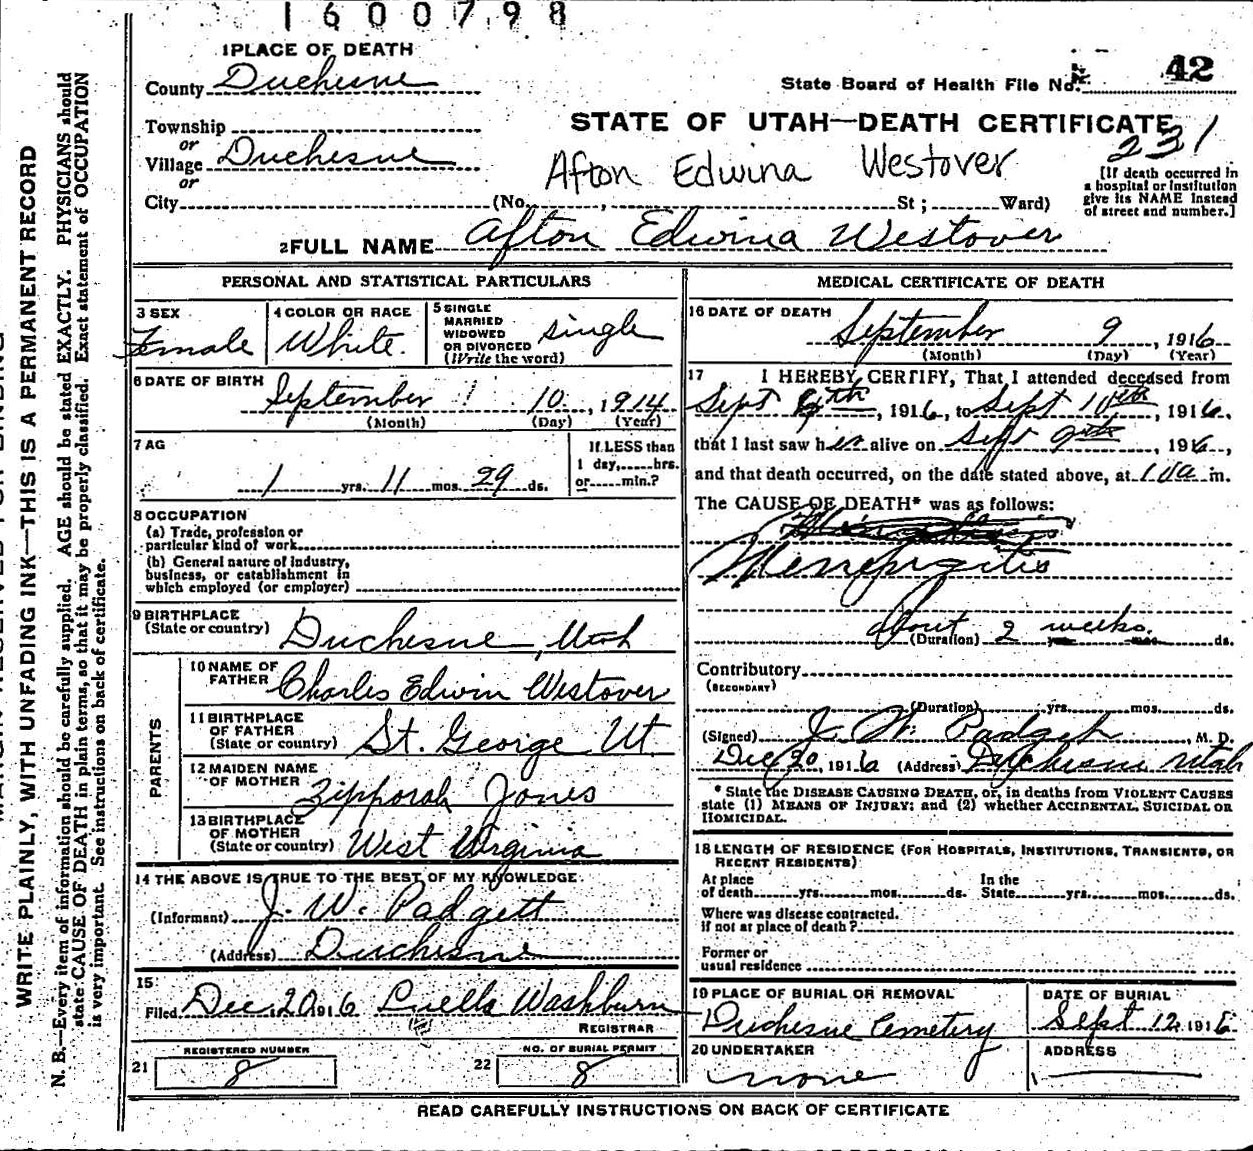 1600798
1 PLACE OF DEATH
County Duchesne
State Board of Health File No. 42
Township
or
Village Duchesne
or
City (No. , St ; Ward)
STATE OF UTAH—DEATH CERTIFICATE
231
Afton Edwina Westover
[If death occurred in
a hospital or institution
give its NAME instead
of street and number.]
2 FULL NAME Afton Edwina Westover
PERSONAL AND STATISTICAL PARTICULARS
3 SEX
Female
4 COLOR OR RACE
White.
5 SINGLE
MARRIED
WIDOWED
OR DIVORCED
(Write the word)
single
6 DATE OF BIRTH
September 10, 1914
(Month) (Day) (Year)
7 AG
1 yrs. 11 mos. 29 ds.
If LESS than
1 day,......hrs.
or......min.?
8 OCCUPATION
(a) Trade, profession or
particular kind of work
(b) General nature of industry,
business, or establishment in
which employed (or employer)
9 BIRTHPLACE
(State or country)
Duchesne, Utah
PARENTS
10 NAME OF
FATHER
Charles Edwin Westover
11 BIRTHPLACE
OF FATHER
(State or country)
St. George Ut
12 MAIDEN NAME
OF MOTHER
Zipporah Jones
13 BIRTHPLACE
OF MOTHER
(State or country)
West Virginia
14 THE ABOVE IS TRUE TO THE BEST OF MY KNOWLEDGE
(Informant) J. W. Padgett
(Address) Duchesne
15
Filed Dec. 20 1916 Luella Washburn
REGISTRAR
21
REGISTERED NUMBER
8
22
NO. OF BURIAL PERMIT
8
MEDICAL CERTIFICATE OF DEATH
16 DATE OF DEATH
September 9, 1916
(Month) (Day) (Year)
17 I HEREBY CERTIFY, That I attended deceased from
Sept th, 1916, to Sept 10th, 1916,
that I last saw her alive on Sept 9th, 1916,
and that death occurred, on the date stated above, at m.
The CAUSE OF DEATH* was as follows:
About 2 weeks
(Duration) ds.
Contributory
(SECONDARY)
(Duration) yrs. mos. ds.
(Signed) J. W. Padgett, M. D.
Dec 20, 1916 (Address) Duchesne Utah
* State the DISEASE CAUSING DEATH, or, in deaths from VIOLENT CAUSES
state (1) MEANS OF INJURY; and (2) whether ACCIDENTAL, SUICIDAL OR
HOMICIDAL.
18 LENGTH OF RESIDENCE (FOR HOSPITALS, INSTITUTIONS, TRANSIENTS, OR
RECENT RESIDENTS)
At place
of death......yrs......mos......ds.
In the
State......yrs......mos......ds.
Where was disease contracted,
if not at place of death?
Former or
usual residence
19 PLACE OF BURIAL OR REMOVAL
Duchesne Cemetery
DATE OF BURIAL
Sept 12, 1916
20 UNDERTAKER
none
ADDRESS
READ CAREFULLY INSTRUCTIONS ON BACK OF CERTIFICATE
WRITE PLAINLY, WITH UNFADING INK—THIS IS A PERMANENT RECORD
N. B.—Every item of information should be carefully supplied. AGE should be stated EXACTLY. PHYSICIANS should
state CAUSE OF DEATH in plain terms, so that it may be properly classified. Exact statement of OCCUPATION
is very important. See instructions on back of certificate.